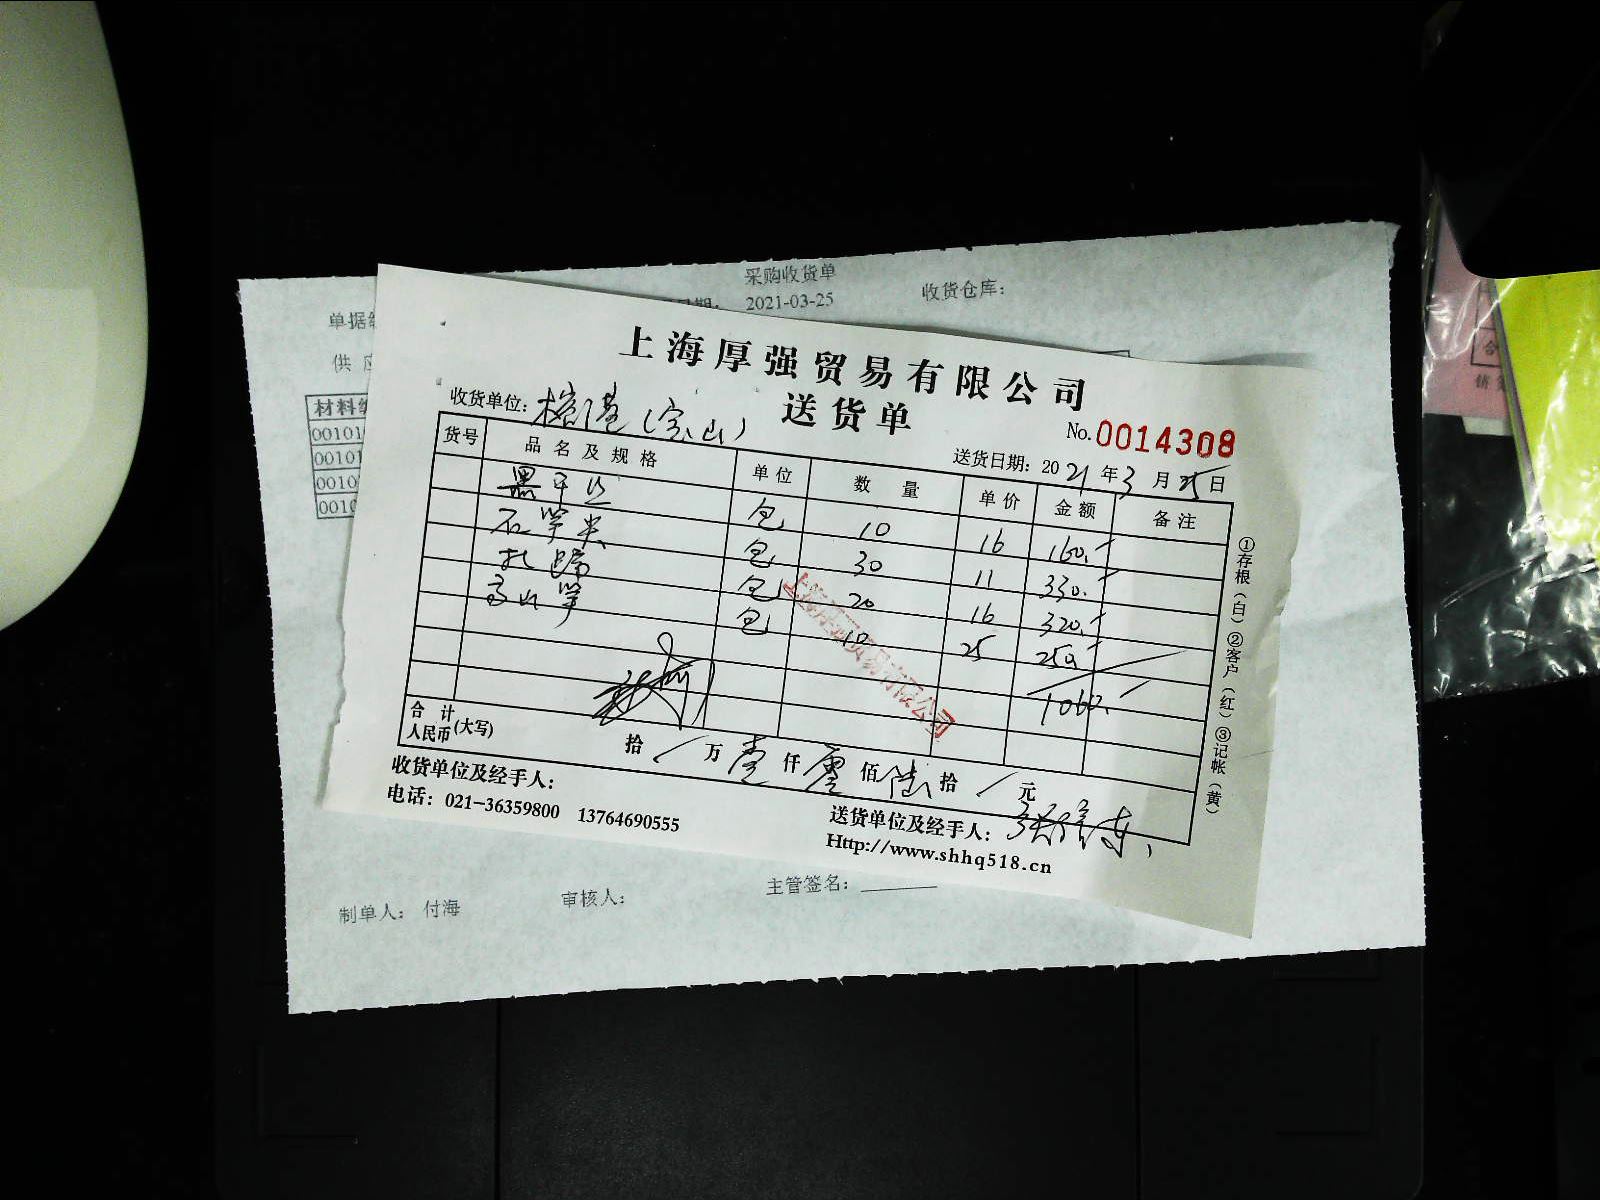 采购收货单
2021-03-25
收货仓库：
单据
供
材料
00101
00101
0010
0010
上海厚强贸易有限公司
送货单
收货单位：（宝山）
No.0014308
送货日期：2021年3月25日
货号 品名及规格 单位 数量 单价 金额 备注
黑千丝 包 10 16 160.
石笋尖 包 30 11 330.
扎蹄 包 20 16 320.
高山笋 包 10 25 250.
1060.
合计
人民币(大写) 拾 / 万 壹 仟 零 佰 陆 拾 / 元
收货单位及经手人：
送货单位及经手人：
电话：021-36359800 13764690555
Http://www.shhq518.cn
①存根（白）②客户（红）③记帐（黄）
贸易有限公司
制单人： 付海
审核人：
主管签名：